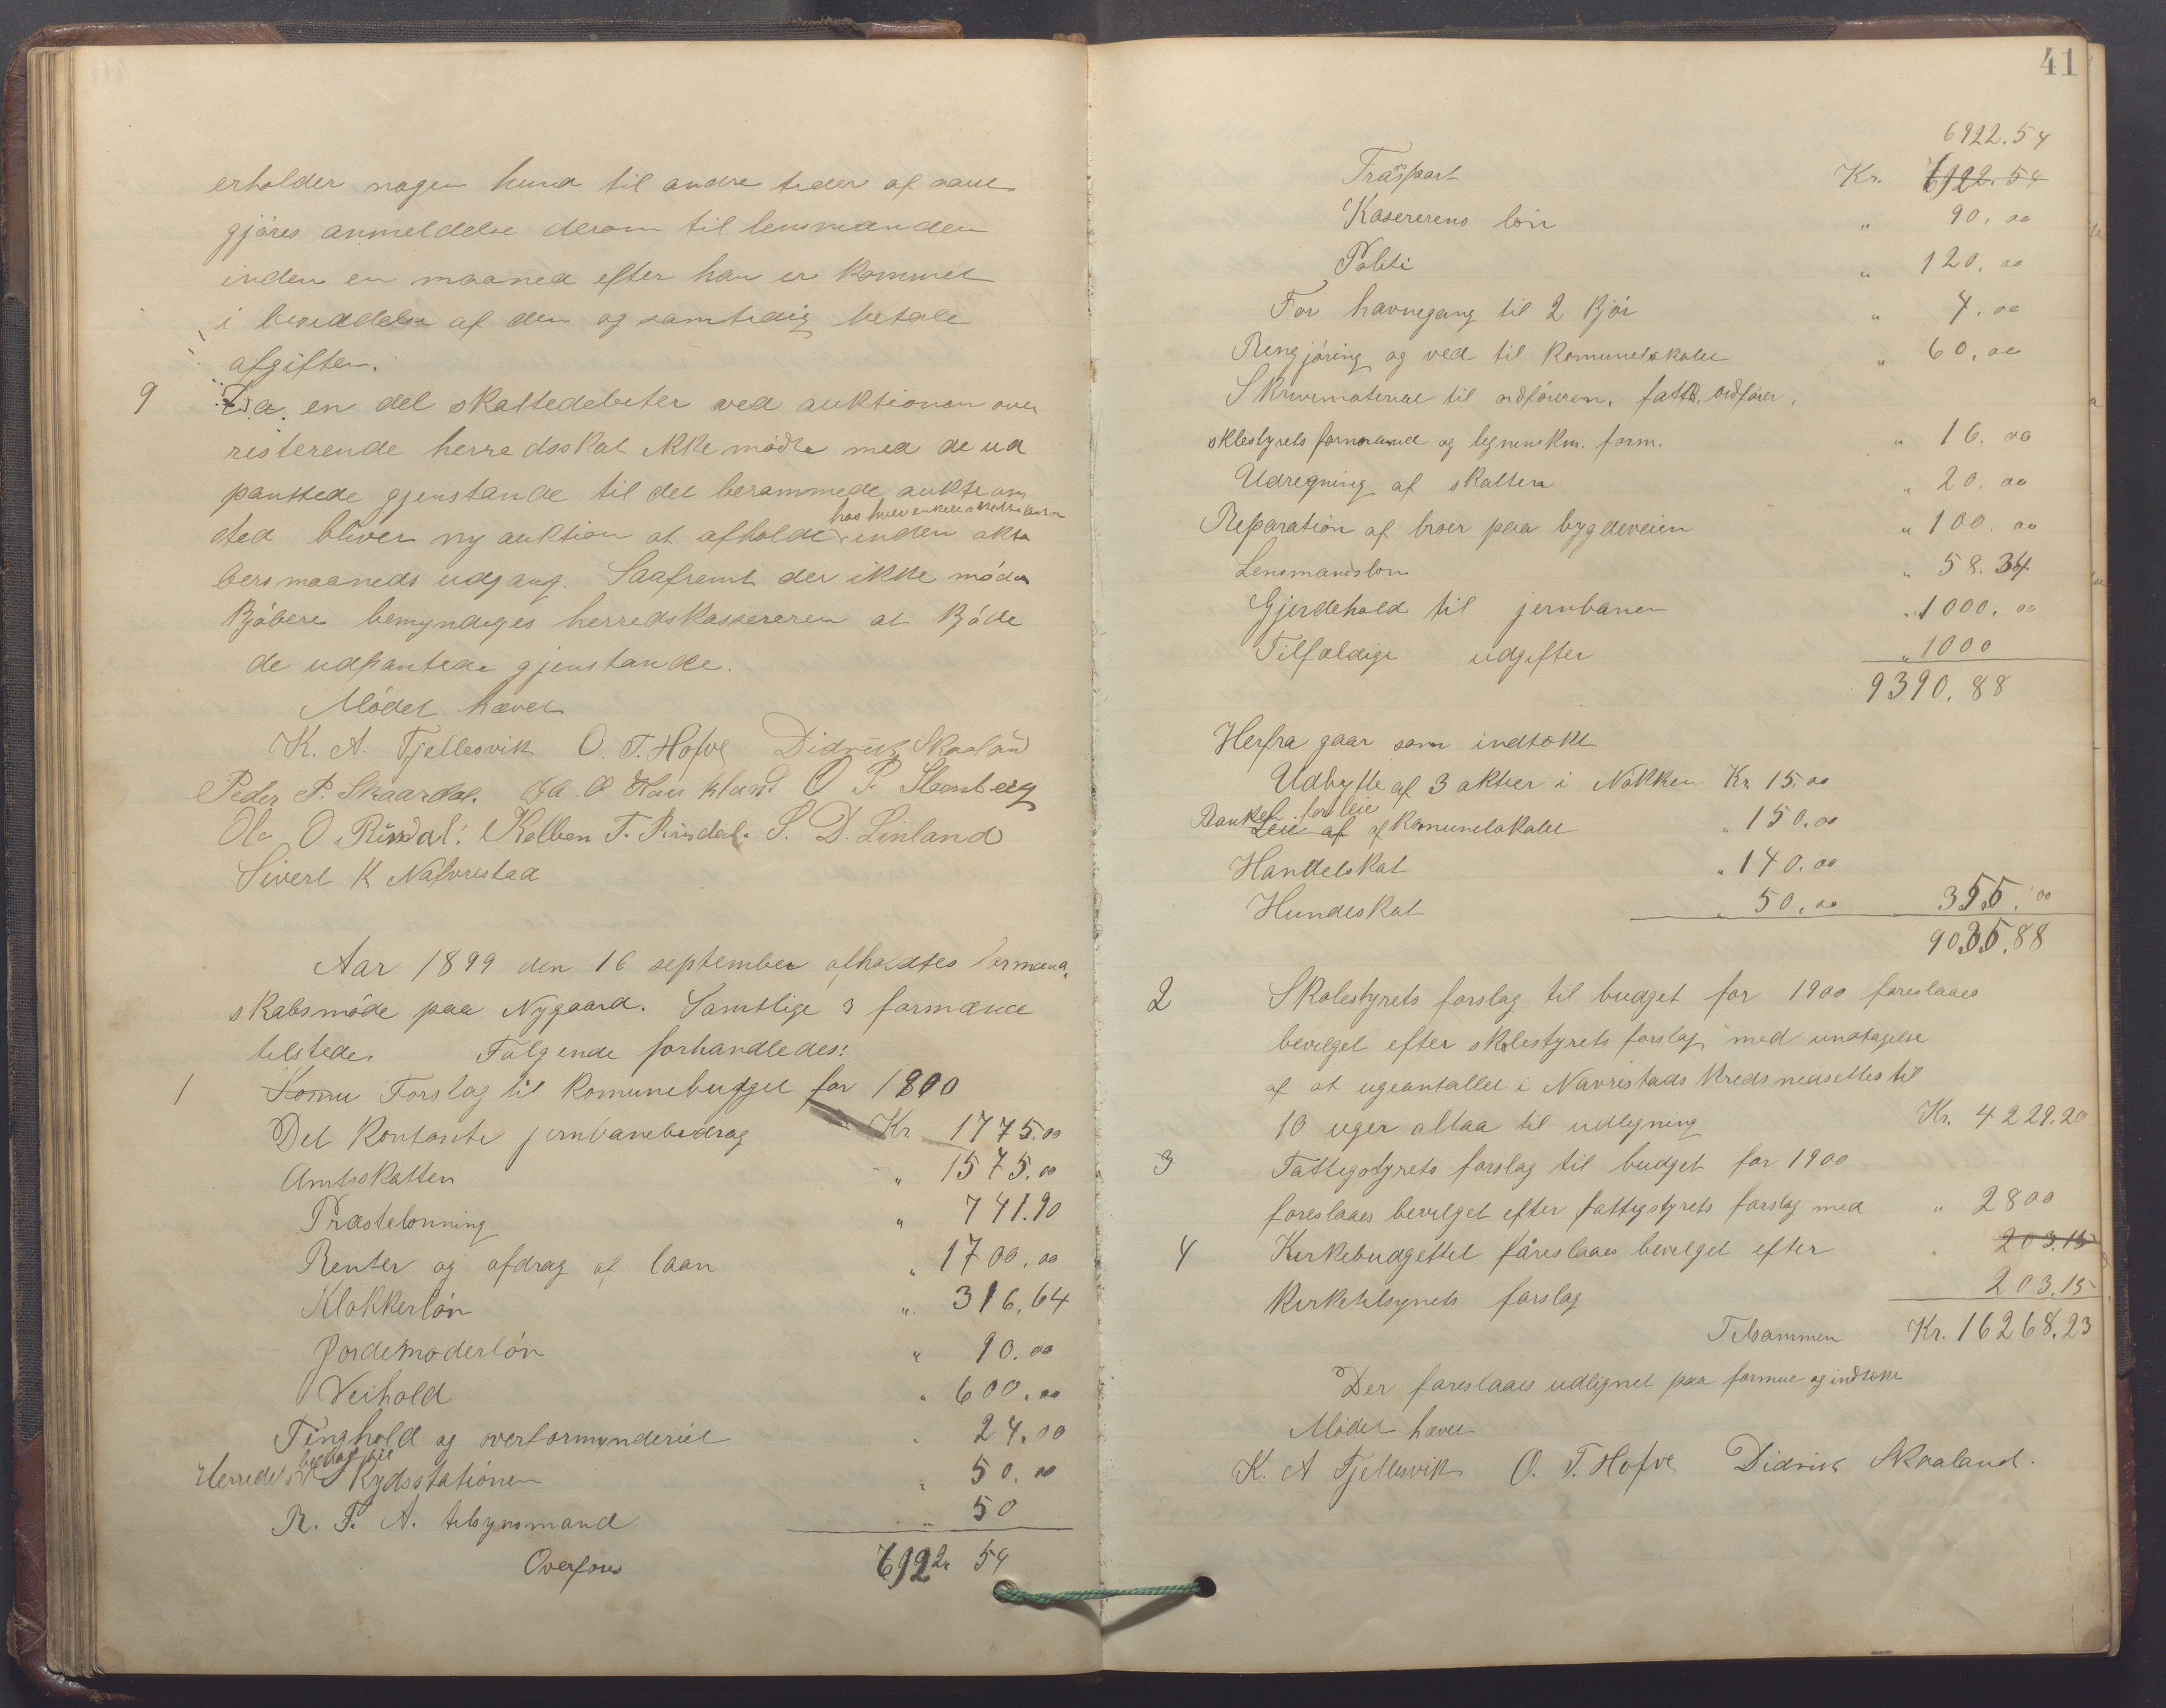 erholder nogen hund til andre tider af aaret
gjøres anmeldelse derom til lensmanden
inden en maaned efter han er kommet
i besiddelse af den og samtidig betale
afgiften.
9 Da en del skattedebiter ved auktionen over
risterende herredsskat ikke mødte med de ud
pantede gjenstande til det berammede auktions
hos hver enkelt
sted bliver ny auktion at afholde inden okto
bersmaaneds udgang. Saafremt der ikke møder
kjøbere bemyndiges herredskassereren at kjøbe
de udpantede gjenstande.
Mødet hævet
K. A. Fjellesvik O. T. Hofve Didrik Skaaland
Peder P. Skaardal. O P. Steenberg
Ola O Rusdal. Kolben T. Rusdal. S. D. Linland
Sivert K Nafvrestad
Aar 1899 den 16 september afholdtes formand-
skabsmøde paa Nygaard. Samtlige 3 formænd
tilstede. Følgende forhandledes:
1 Komu Forslag til komunebudget for 1900
Det kontante jernbanebidrag Kr 1775.00
Amtsskatten " 1575.00
Præstelønning " 741.90
Renter og afdrag af laan " 1700.00
Klokkerløn " 316,64
Jordemoderløn " 90.00
Veihold " 600.00
Tinghold og overformynderiet " 24.00
bidrag til
Herredets Skydsstationen " 50.00
R. F. A. tilsynsmand " 50
Overføres 6922 54
41
6922.54
Trasport Kr. 6922.54
Kasererens løn " 90.00
Politi " 120.00
For havnegang til 2 kjør " 4.00
Rengjøring og ved til komunelokalet " 60,00
Skrivemateriae til ordføreren, fattk. ordfører,
sklestyrets formand og lignenskm. form. " 16.00
Udregning af skatten " 20.00
Reparation af broer paa bygdeveien " 100.00
Lensmandsløn " 58.34
Gjerdehold til jernbanen " 1000.00
Tilfældige udgifter " 1000
9390.88
Herfra gaar som indtækt
Udbytte af 3 aktier i Nøkken Kr. 15.00
Banken for leie
Leie af af Komunelokalet " 150.00
Handelskat " 140.00
Hundeskat " 50.00 355.00
9035.88
2 Skolestyrets forslag til budget for 1900 foreslaaes
bevilget efter skolestyrets forslag med undtagelse
af at ugeantallet i Navrestads kreds nedsettes til
10 uger altaa til udligning Kr. 4229.20
3 Fattigstyrets forslag til budget for 1900
foreslaaes bevilget efter fattigstyrets forslag med " 2800
4 Kirkebudgettet føreslaaes bevilget efter " 203.15
Kirketilsynets forslag 203.15
Tilsammen Kr. 16268.23
Der foreslaaes udlignet paa formue og indtækt
Mødet hævet
K. A Fjellesvik O. T. Hofve Didrik Skaaland.